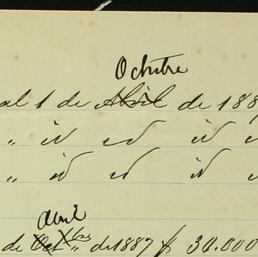 Octubre
al 1 de Abril de 188
" id id id
" id id id
Abril
de Octbre " de 1887 $ 30.000